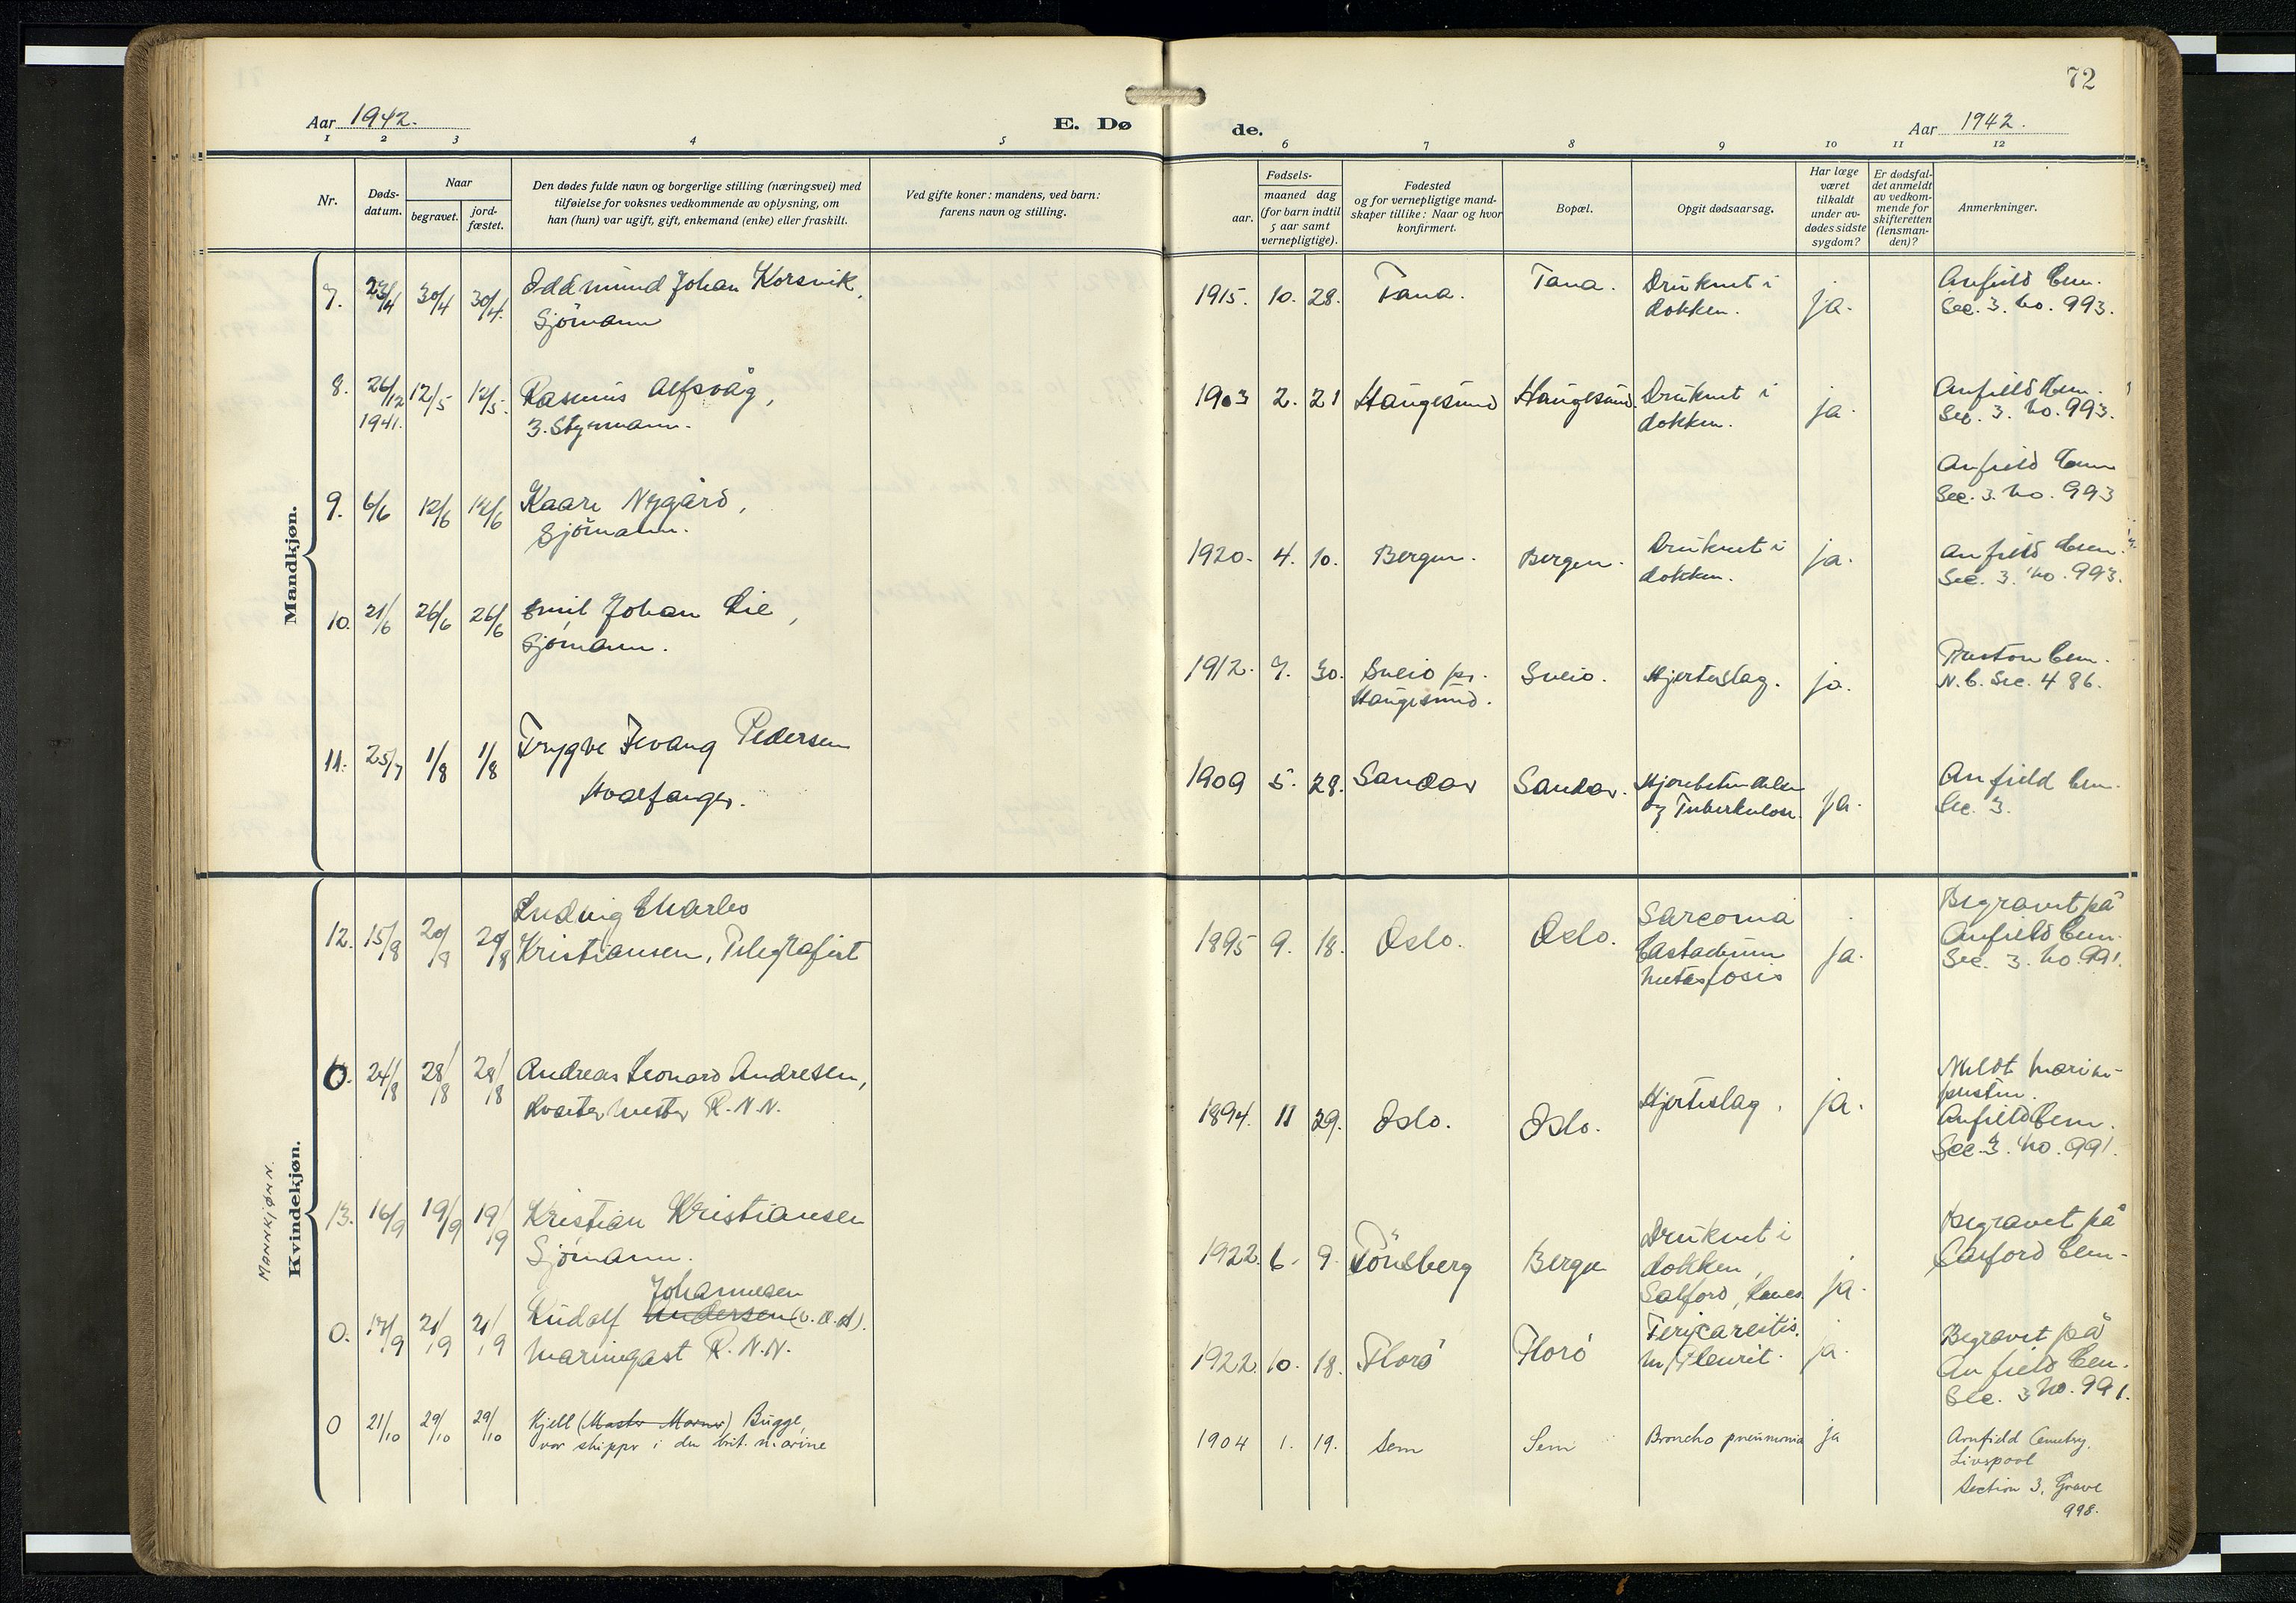 72
Aar 1942.
E. Døde.
Aar 1942.
1 2 3 4 5 6 7 8 9 10 11 12
Nr.
Døds-
datum.
Naar
begravet.
jord-
fæstet.
Den dødes fulde navn og borgerlige stilling (næringsvei) med
tilføielse for voksnes vedkommende av oplysning, om
han (hun) var ugift, gift, enkemand (enke) eller fraskilt.
Ved gifte koner: mandens, ved barn:
farens navn og stilling.
Fødsels-
aar.
maaned dag
(for barn indtil
5 aar samt
vernepligtige).
Fødested
og for vernepligtige mand-
skaper tillike: Naar og hvor
konfirmert.
Bopæl.
Opgit dødsaarsag.
Har læge
været
tilkaldt
under av-
dødes sidste
sygdom?
Er dødsfal-
det anmeldt
av vedkom-
mende for
skifteretten
(lensman-
den)?
Anmerkninger.
Mandkjøn.
7. 23/4 30/4 30/4. Oddmund Johan Korsvik,
Sjømann
1915. 10. 28. Tana. Tana. Druknet i
dokken. ja. Anfield Cem.
Sec. 3. no. 993.
8. 26/12
1941. 12/5 12/5. Rasmus Alfsvåg,
3. Styrmann.
1903 2. 21 Haugesund Haugesund. Druknet i
dokken. ja. Anfield Cem.
Sec. 3. no. 993.
Anfield Cem
Sec. 3. no. 993
9. 6/6 12/6 12/6 Kaare Nygård,
Sjømann.
1920. 4. 10. Bergen. Bergen. Druknet i
dokken. ja. Anfield Cem.
Sec. 3. no. 993.
10. 21/6 26/6 26/6 Emil Johan Lie,
Sjømann.
1912. 7. 30. Sveio pr.
Haugesund. Sveio. Hjerteslag. ja. Preston Cem.
N.C. Sec. 4 86.
11. 25/7 1/8 1/8 Trygve Jevang Pedersen
Hvalfanger.
1909 5. 28. Sandar Sandar.
og Tuberkulose. ja. Anfield Cem.
Sec. 3.
MANNKJØNN.
Kvindekjøn.
12. 15/8 20/8 20/8 Ludvig Charles
Kristiansen, Telegrafist
1895 9. 18. Oslo. Oslo. Sarcoma
ja. Begravet på
Anfield Cem.
Sec. 3. no. 991.
0. 24/8 28/8 28/8 Andreas Leonard Andresen,
Kvartermester R.N.N.
1894. 11 29. Oslo. Oslo. Hjerteslag. ja. Meldt marine-
presten.
Anfield Cem.
Sec. 3. no. 991.
13. 16/9 19/9 19/9 Kristian Kristiansen
Sjømann.
1922. 6. 9. Tönsberg Bergen Druknet i
dokken,
Salford, Lancs. ja. Begravet på
Salford Cem.
0. 17/9 21/9 21/9 Johannesen
Rudolf Andersen (v.a.d).
Maringast R.N.N.
1922. 10. 18. Florö Florö Pericarditis.
m/Pleurit. ja. Begravet på
Anfield Cem.
Sec. 3 no. 991.
0 21/10 29/10 29/10 Kjell Bugge,
var skipper i den brit. marine
1904 1. 19. Sem Sem Broncho pneumonia ja Anfield Cemetry,
Liverpool
Section 3, Grave
998.